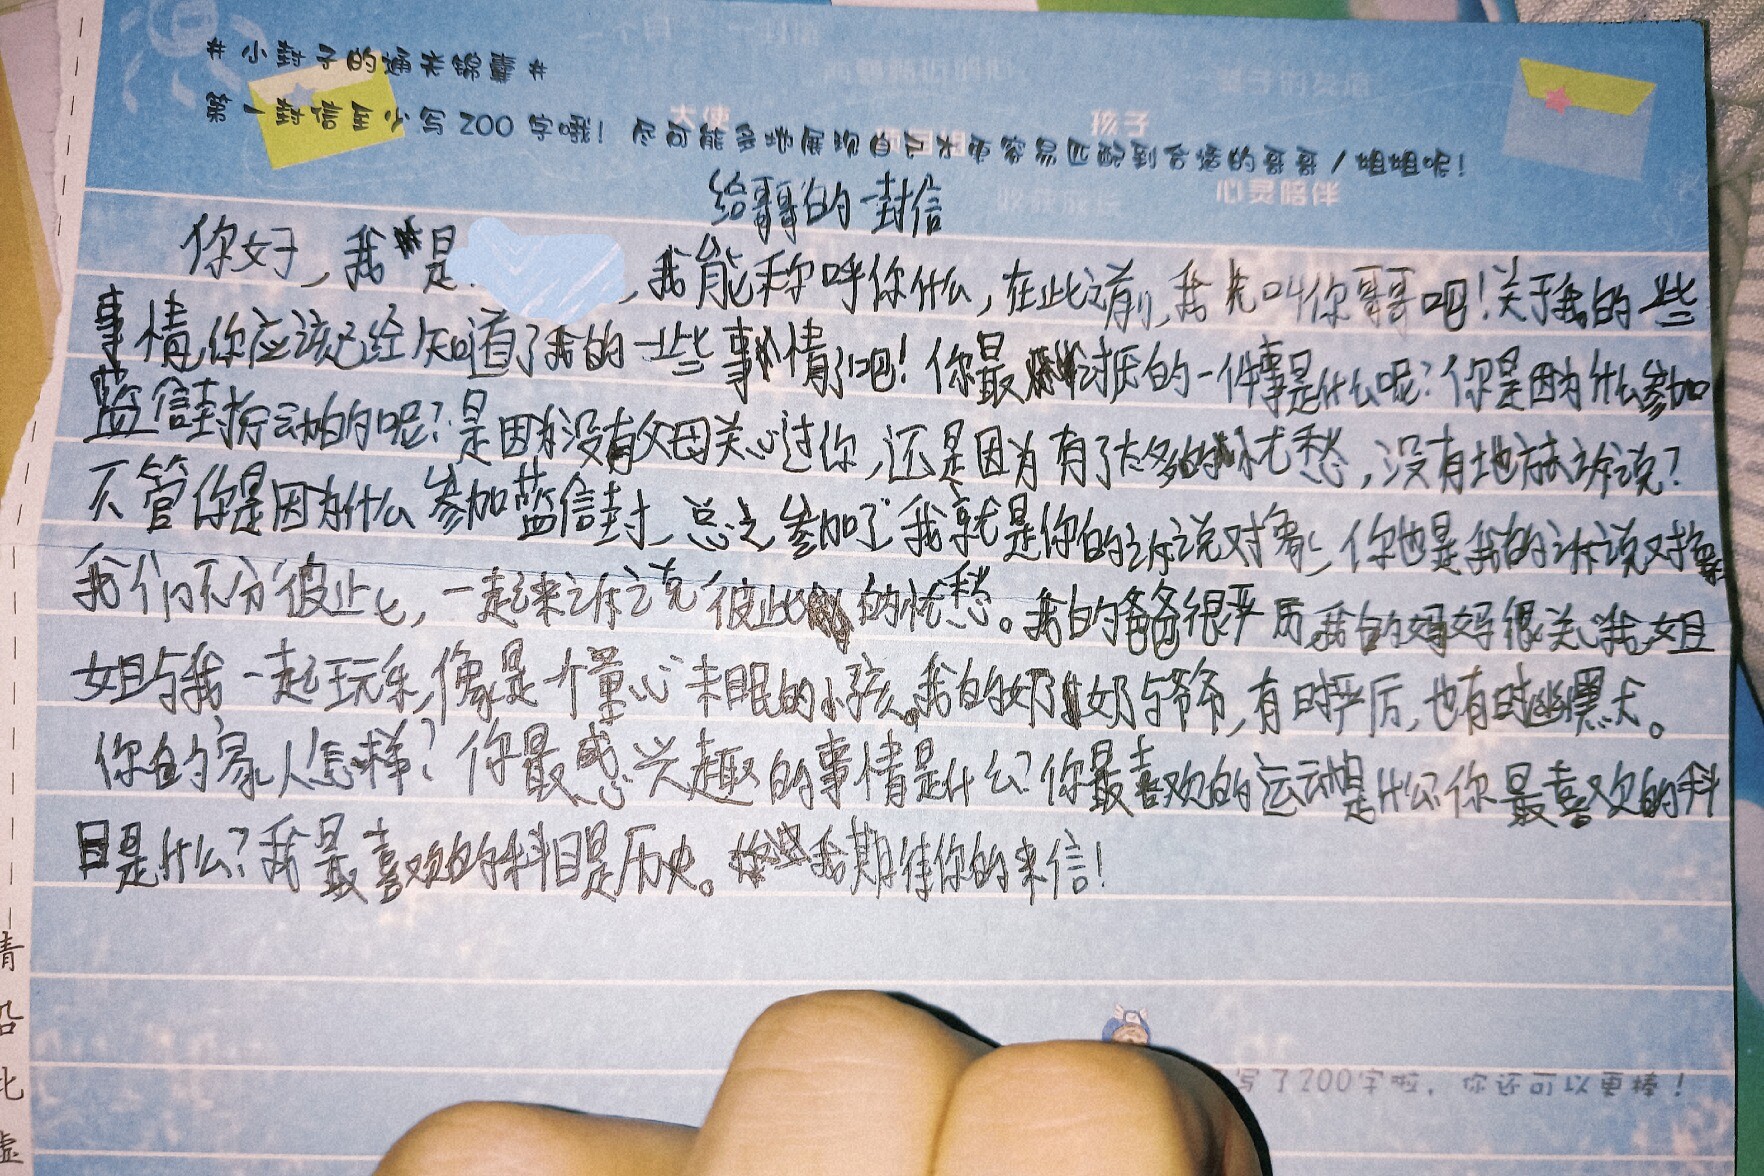 #小封子的通关锦囊#
第一封信至少写200字哦！尽可能多地展现自己才更容易匹配到合适的哥哥/姐姐呢！
大使
孩子
心灵陪伴
给哥哥的一封信
你好，我是，我能称呼你什么，在此之前，我先叫你哥哥吧！关于我的一些
事情，你应该已经知道了我的一些事情了吧！你最讨厌的一件事是什么呢？你是因为什么参加
蓝信封活动的呢？是因为没有父母关心过你，还是因为有了太多的忧愁，没有地方诉说？
不管你是因为什么参加蓝信封，总之参加了我就是你的诉说对象，你也是我的诉说对象
我们不分彼此，一起来诉说彼此的忧愁。我的爸爸很严厉，我的妈妈很关心我，姐
姐与我一起玩乐，像是个童心未眠的小孩。我的奶奶与爷爷，有时严厉，也有时幽默。
你的家人怎样？你最感兴趣的事情是什么？你最喜欢的运动是什么？你最喜欢的科
目是什么？我最喜欢的科目是历史。我期待你的来信！
写了200字啦，你还可以更棒！